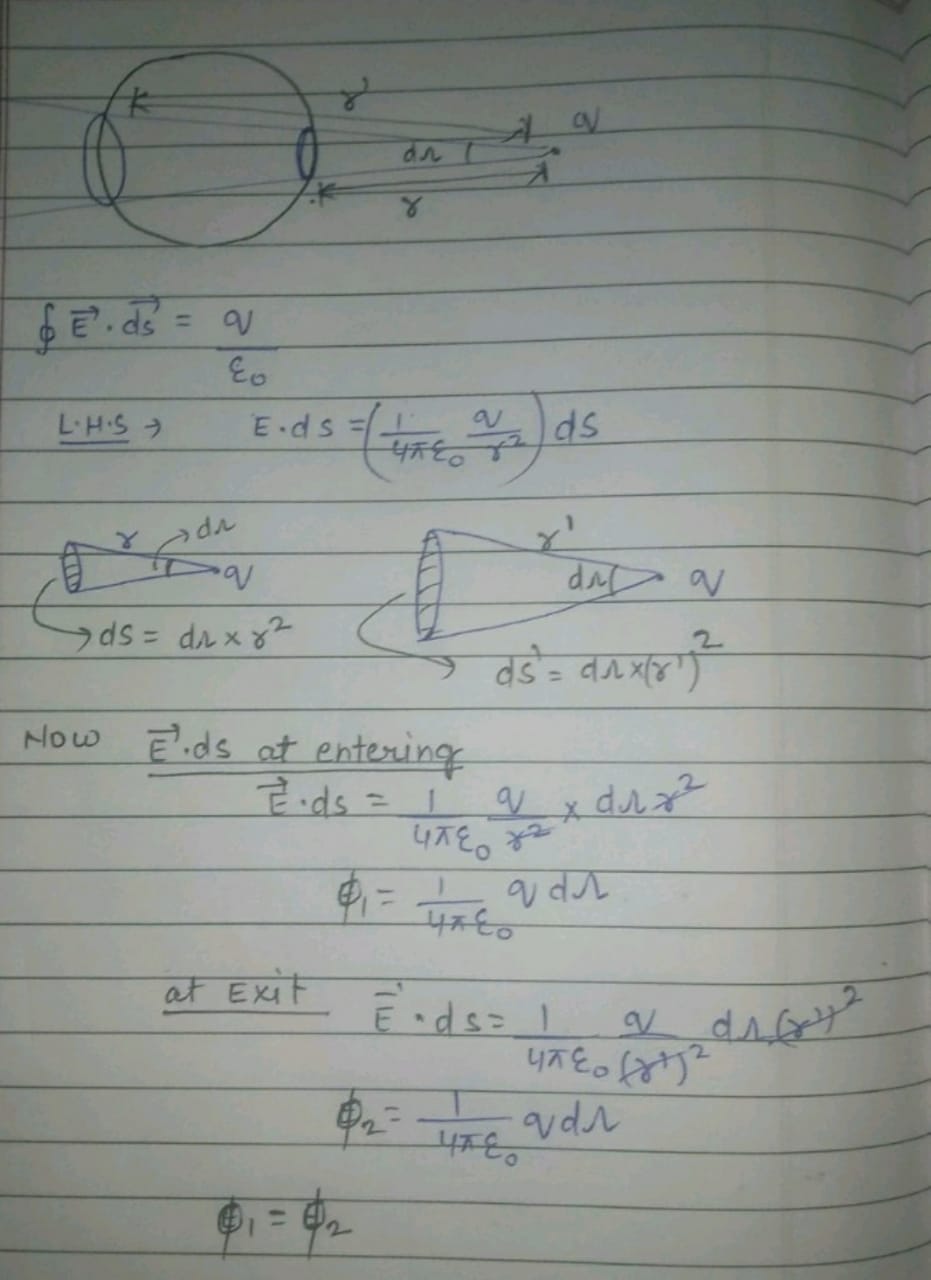 r' q
dΩ
r
∮ E⃗ . ds⃗ = q/ε₀
L.H.S → E . ds = (1/4πε₀ q/r²) ds
r dΩ r'
q dΩ q
ds = dΩ x r²
ds' = dΩ x (r')²
Now E⃗.ds at entering
E⃗ . ds = 1/4πε₀ q/r² x dΩ r²
ϕ₁ = 1/4πε₀ q dΩ
at Exit E⃗ . ds = 1/4πε₀ q/(r')² dΩ (r')²
ϕ₂ = 1/4πε₀ q dΩ
ϕ₁ = ϕ₂